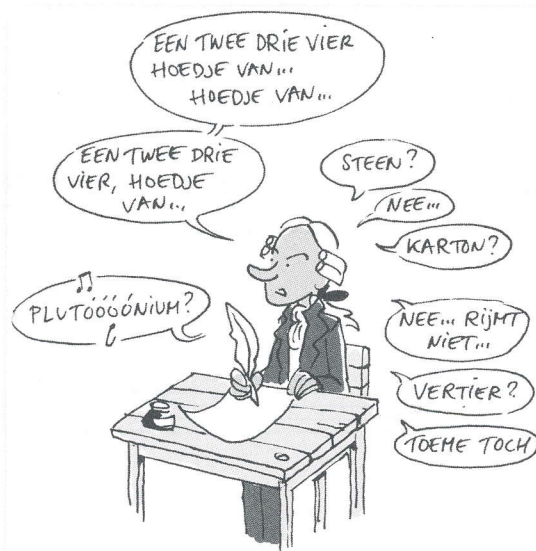 EEN TWEE DRIE VIER
HOEDJE VAN...
HOEDJE VAN...
EEN TWEE DRIE
VIER, HOEDJE
VAN...
STEEN?
NEE...
KARTON?
PLUTÓÓÓÓNIUM?
NEE... RIJMT
NIET...
VERTIER?
TOEME TOCH